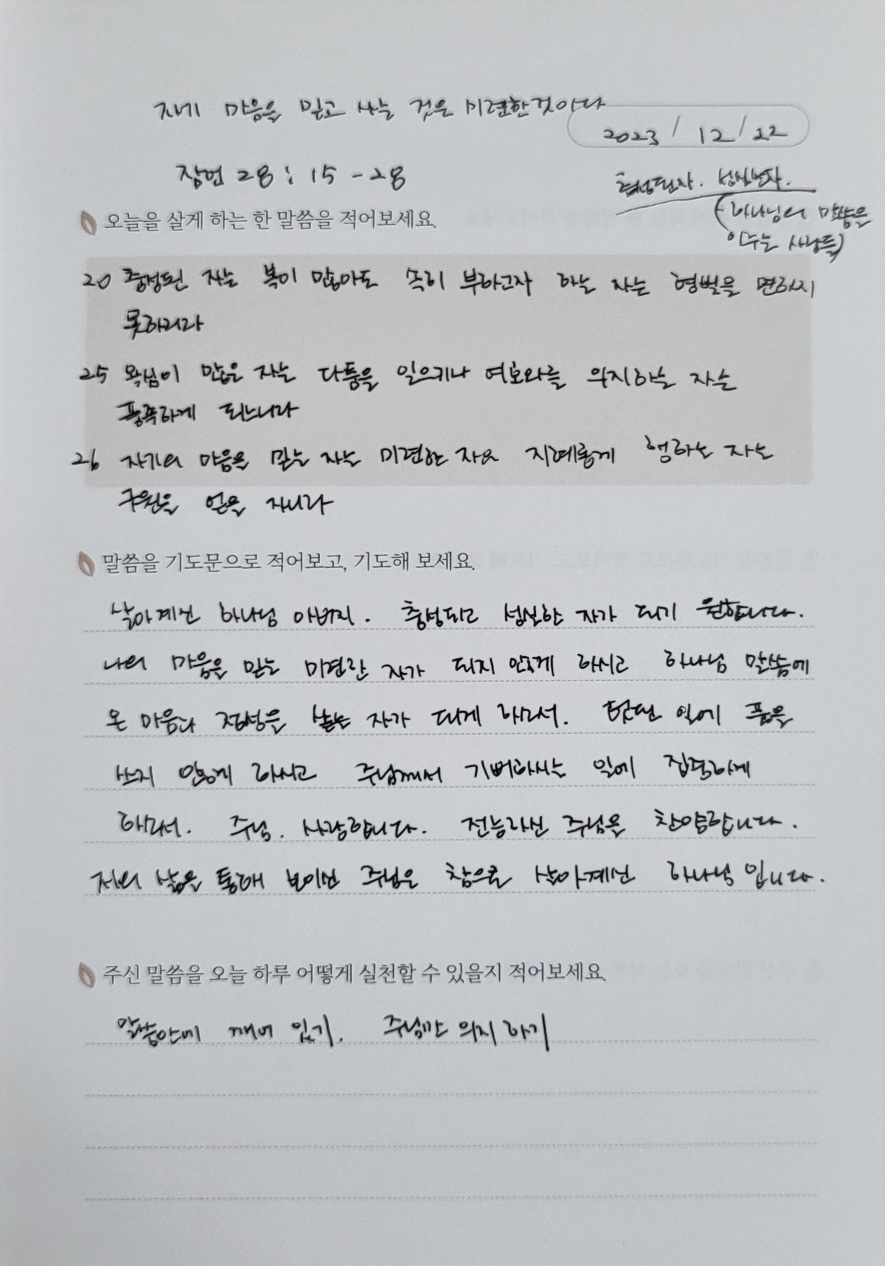 자기 마음을 믿고 사는 것은 미련한것이다
2023/12/22
잠언 28:15-28
충성된자. 성실한자.
(하나님의 말씀을
이루는 사람들)
오늘을 살게 하는 한 말씀을 적어보세요.
20 충성된 자는 복이 많아도 속히 부하고자 하는 자는 형벌을 면하지
못하리라
25 욕심이 많은 자는 다툼을 일으키나 여호와를 의지하는 자는
풍족하게 되느니라
26 자기의 마음을 믿는 자는 미련한 자요 지혜롭게 행하는 자는
구원을 얻을 자니라
말씀을 기도문으로 적어보고, 기도해 보세요.
살아계신 하나님 아버지. 충성되고 성실한 자가 되기 원합니다.
나의 마음을 믿는 미련한 자가 되지 않게 하시고 하나님 말씀에
온 마음다 정성을 쏟는 자가 되게 하소서. 헛된 일에 품을
쓰지 않게 하시고 주님께서 기뻐하시는 일에 집중하게
하소서. 주님. 사랑합니다. 전능하신 주님을 찬양합니다.
저의 삶을 통해 보이신 주님은 참으로 살아계신 하나님 입니다.
주신 말씀을 오늘 하루 어떻게 실천할 수 있을지 적어보세요.
말씀안에 깨어 있기. 주님만 의지 하기